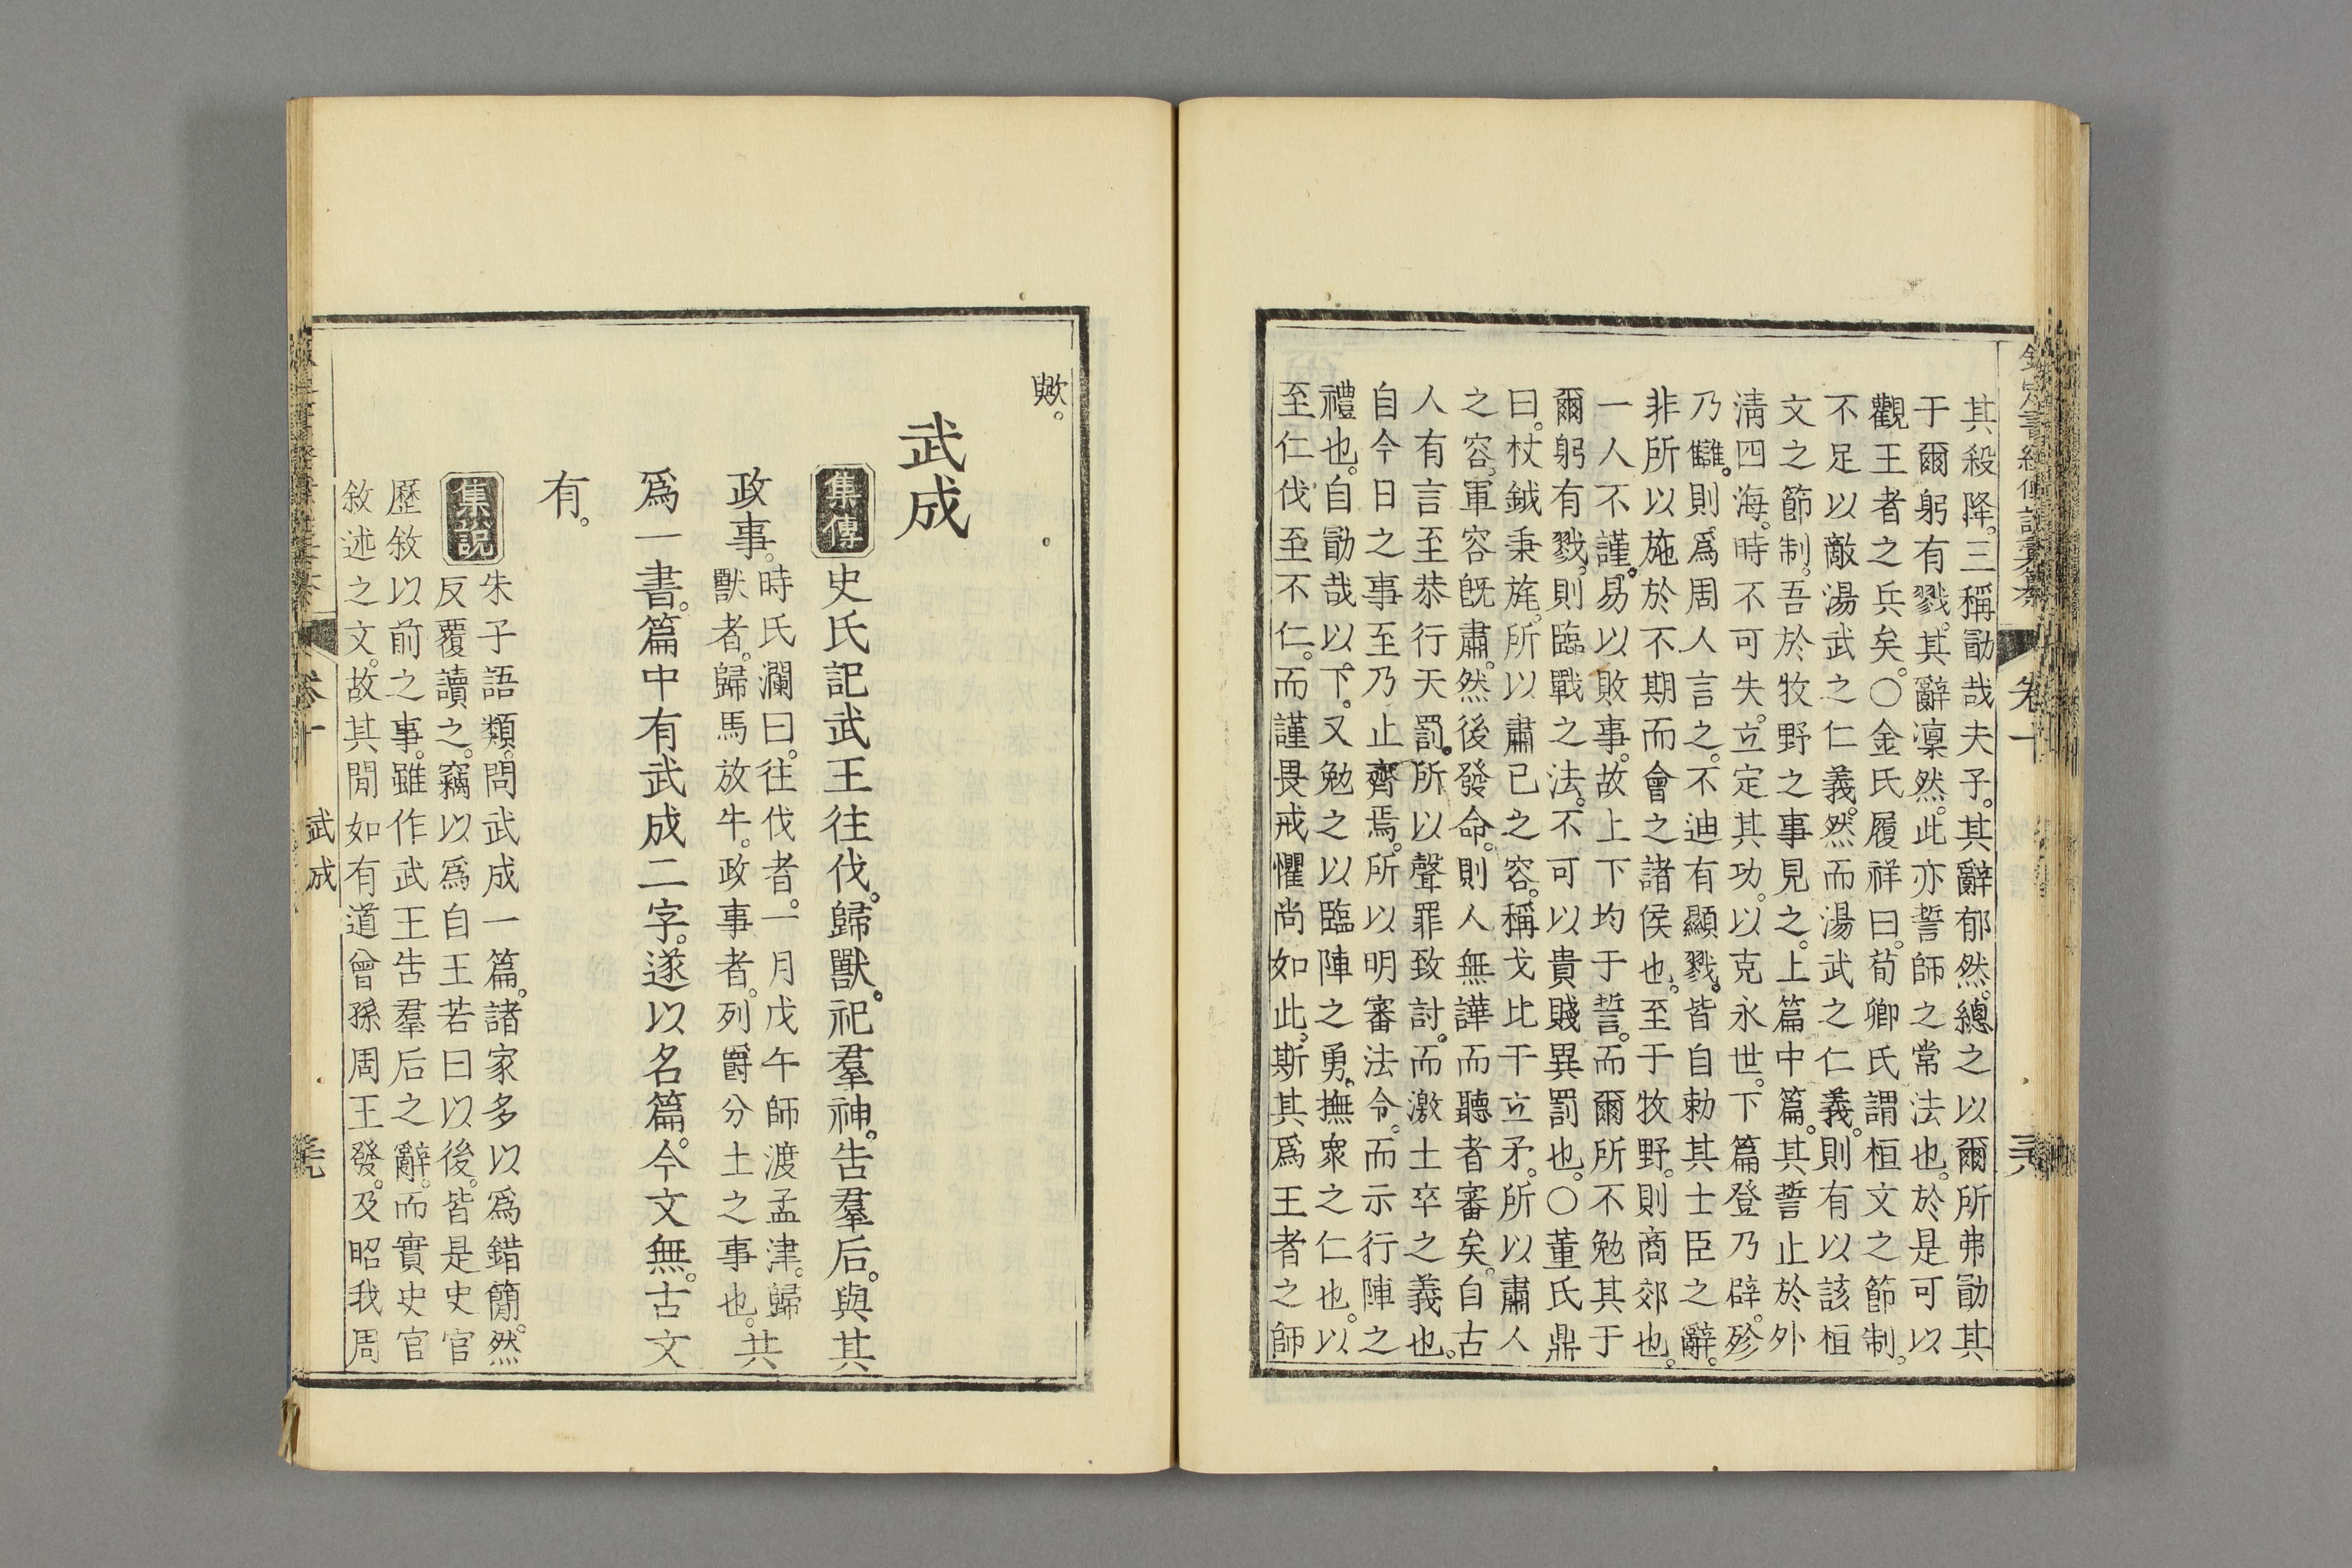 其殺降。三稱勖哉夫子。其辭郁然。總之以爾所弗勖其
于爾躬有戮。其辭凜然。此亦誓師之常法也。於是可以
觀王者之兵矣。○金氏履祥曰。荀卿氏謂桓文之節制。
不足以敵湯武之仁義。然而湯武之仁義。則有以該桓
文之節制。吾於牧野之事見之。上篇中篇。其誓止於外
淸四海。時不可失。立定其功。以克永世。下篇登乃辟。殄
乃讎。則爲周人言之。不迪有顯戮。皆自勅其士臣之辭。
非所以施於不期而會之諸侯也。至于牧野。則商郊也。
一人不謹。易以敗事。故上下均于誓。而爾所不勉其于
爾躬有戮。則臨戰之法。不可以貴賤異罰也。○董氏鼎
曰。杖鉞秉旄。所以肅已之容。稱戈比干立矛。所以肅人
之容。軍容旣肅。然後發命。則人無譁而聽者審矣。自古
人有言至恭行天罰。所以聲罪致討。而激士卒之義也。
自今日之事至乃止齊焉。所以明審法令。而示行陣之
禮也。自勖哉以下。又勉之以臨陣之勇。撫衆之仁也。以
至仁伐至不仁。而謹畏戒懼尚如此。斯其爲王者之師
歟。
武成
集傳 史氏記武王往伐。歸獸。祀羣神。告羣后。與其
政事。時氏瀾曰。往伐者。一月戊午師渡孟津。歸
獸者。歸馬放牛。政事者。列爵分土之事也。共
爲一書。篇中有武成二字。遂以名篇。今文無。古文
有。
集說 朱子語類。問武成一篇。諸家多以爲錯簡。然
反覆讀之。竊以爲自王若曰以後。皆是史官
歷敘以前之事。雖作武王告羣后之辭。而實史官
敘述之文。故其閒如有道曾孫周王發。及昭我周
武成